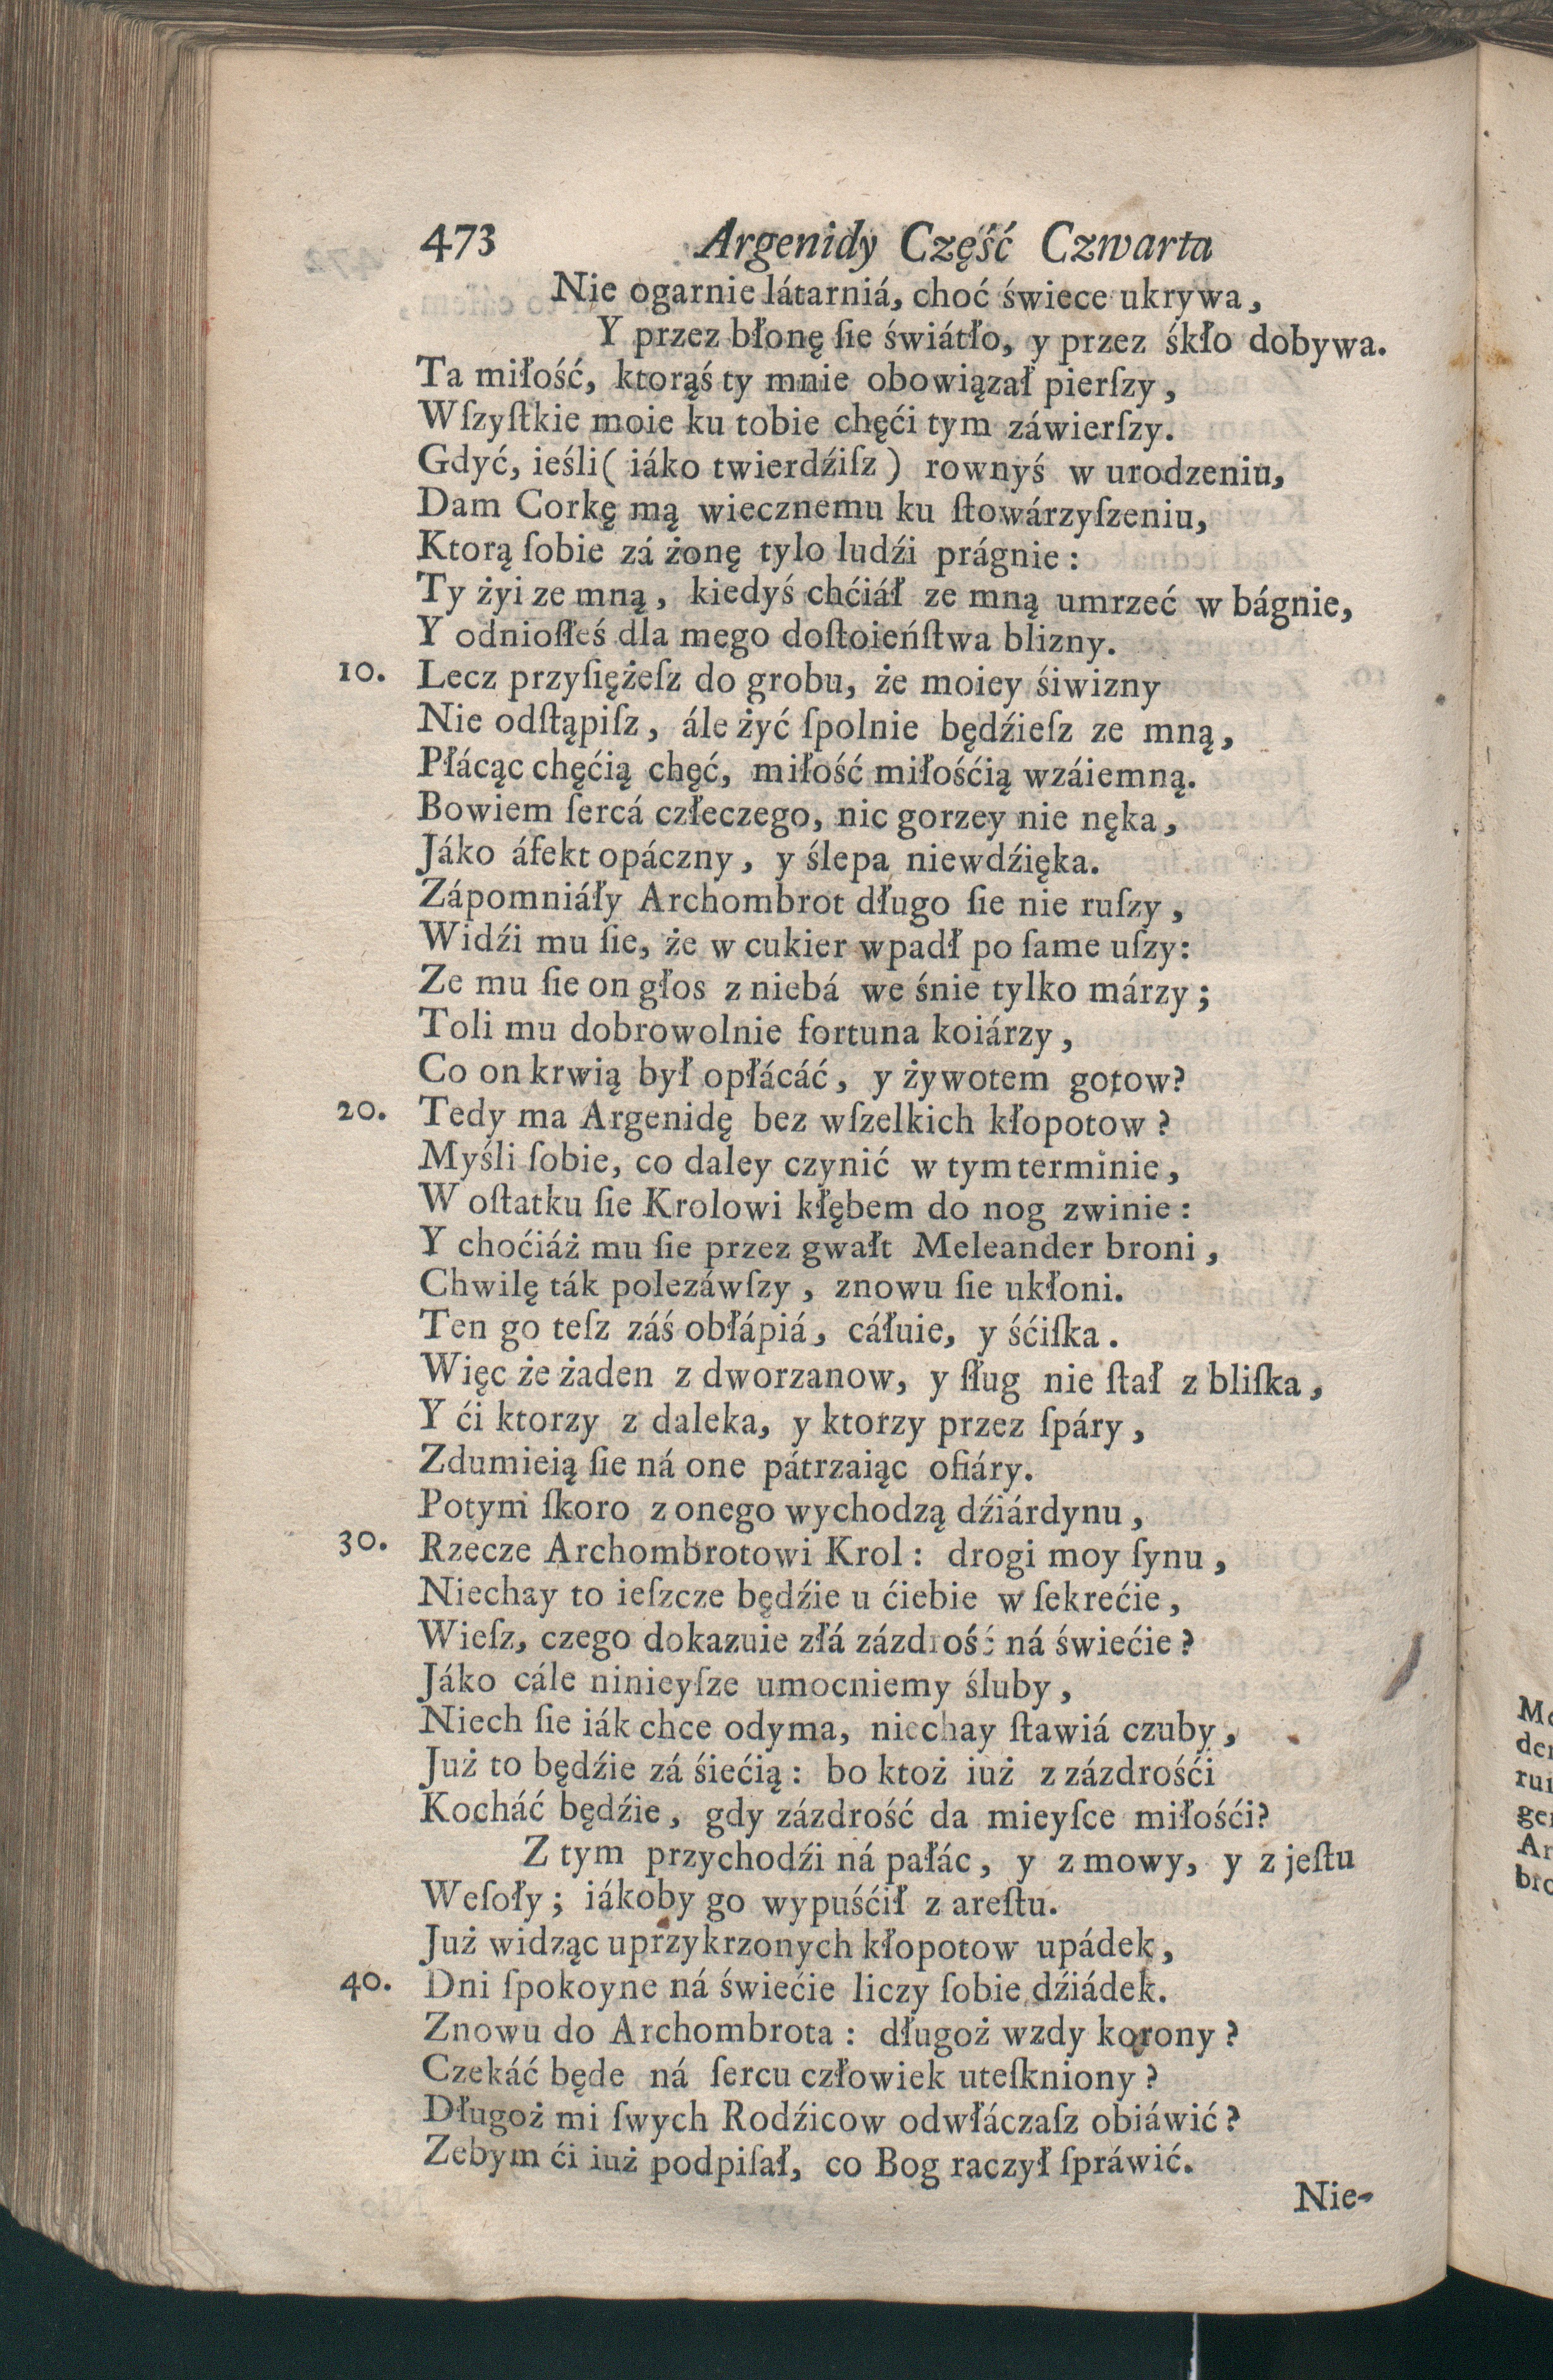 473 Argenidy Część Czwarta
Nie ogarnie látarniá, choć świece ukrywa,
Y przez błonę ſie świátło, y przez śkło dobywa.
Ta miłość, ktorąś ty mnie obowiązał pierſzy,
Wſzyſtkie moie ku tobie chęći tym záwierſzy.
Gdyć, ieśli ( iáko twierdźiſz ) rownyś w urodzeniu,
Dam Corkę mą wiecznemu ku ſtowárzyſzeniu,
Ktorą ſobie zá żonę tylo ludźi prágnie :
Ty żyi ze mną, kiedyś chćiáł ze mną umrzeć w bágnie,
Y odnioſłeś dla mego doſtoieńſtwa blizny.
10. Lecz przyſiężeſz do grobu, że moiey śiwizny
Nie odſtąpiſz, ále żyć ſpolnie będźieſz ze mną,
Płácąc chęćią chęć, miłość miłośćią wzáiemną.
Bowiem ſercá człeczego, nic gorzey nie nęka,
Jáko áfekt opáczny, y ślepa niewdźięka.
Zápomniáły Archombrot długo ſie nie ruſzy,
Widźi mu ſie, że w cukier wpadł po ſame uſzy:
Ze mu ſie on głos z niebá we śnie tylko márzy;
Toli mu dobrowolnie fortuna koiárzy,
Co on krwią był opłácáć, y żywotem gotow?
20. Tedy ma Argenidę bez wſzelkich kłopotow ?
Myśli ſobie, co daley czynić w tym terminie,
W oſtatku ſie Krolowi kłębem do nog zwinie :
Y choćiáż mu ſie przez gwałt Meleander broni,
Chwilę ták polezáwſzy, znowu ſie ukłoni.
Ten go teſz záś obłápiá, cáłuie, y śćiſka.
Więc że żaden z dworzanow, y ſług nie ſtał z bliſka,
Y ći ktorzy z daleka, y ktorzy przez ſpáry,
Zdumieią ſie ná one pátrzaiąc ofiáry.
Potym ſkoro z onego wychodzą dźiárdynu,
30. Rzecze Archombrotowi Krol : drogi moy ſynu,
Niechay to ieſzcze będźie u ćiebie w ſekrećie,
Wieſz, czego dokazuie złá zázdrość ná świećie ?
Jáko cále ninieyſze umocniemy śluby,
Niech ſie iák chce odyma, niechay ſtawiá czuby,
Już to będźie zá śiećią : bo ktoż iuż z zázdrośći
Kocháć będźie, gdy zázdrość da mieyſce miłośći?
Z tym przychodźi ná páłác, y z mowy, y z jeſtu
Weſoły ; iákoby go wypuśćił z areſtu.
Już widząc uprzykrzonych kłopotow upádek,
40. Dni ſpokoyne ná świećie liczy ſobie dźiádek.
Znowu do Archombrota : długoż wzdy korony ?
Czekáć będe ná ſercu człowiek uteſkniony ?
Długoż mi ſwych Rodźicow odwłáczaſz obiáwić ?
Zebym ći iuż podpiſał, co Bog raczył ſpráwić.
Nie-